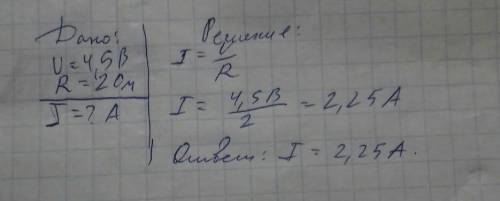 Дано:
U = 4,5В
R = 2 Ом
I = ? А
Решение:
I = U/R
I = 4,5В/2 = 2,25 А
Ответ: I = 2,25 А.